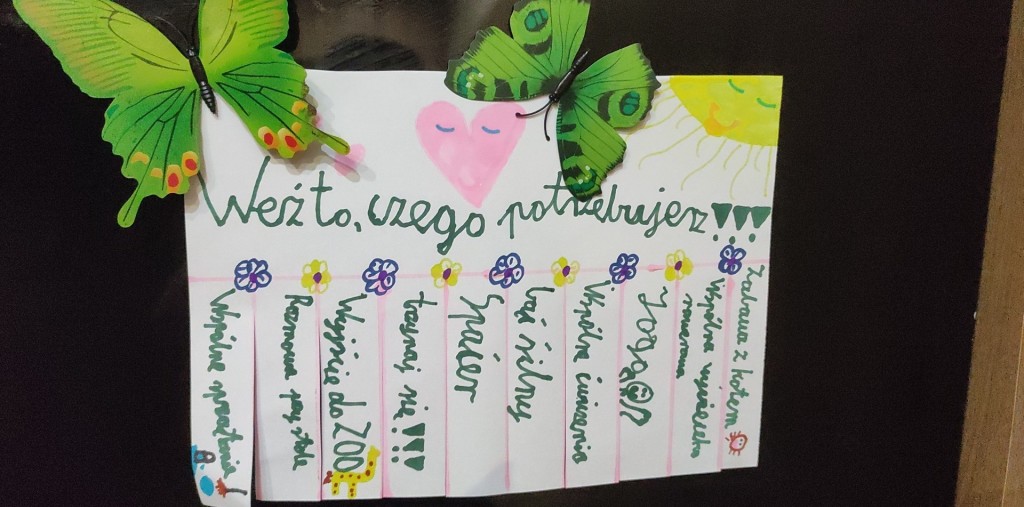 Weź to, czego potrzebujesz!!!
Wspólne sprzątanie!
Rozmowa przy stole
Wyjście do ZOO
trzymaj się!!!
Spacer
bądź silny
Wspólne ćwiczenia
Joga
Wspólna wycieczka
rowerowa
Zabawa z kotem